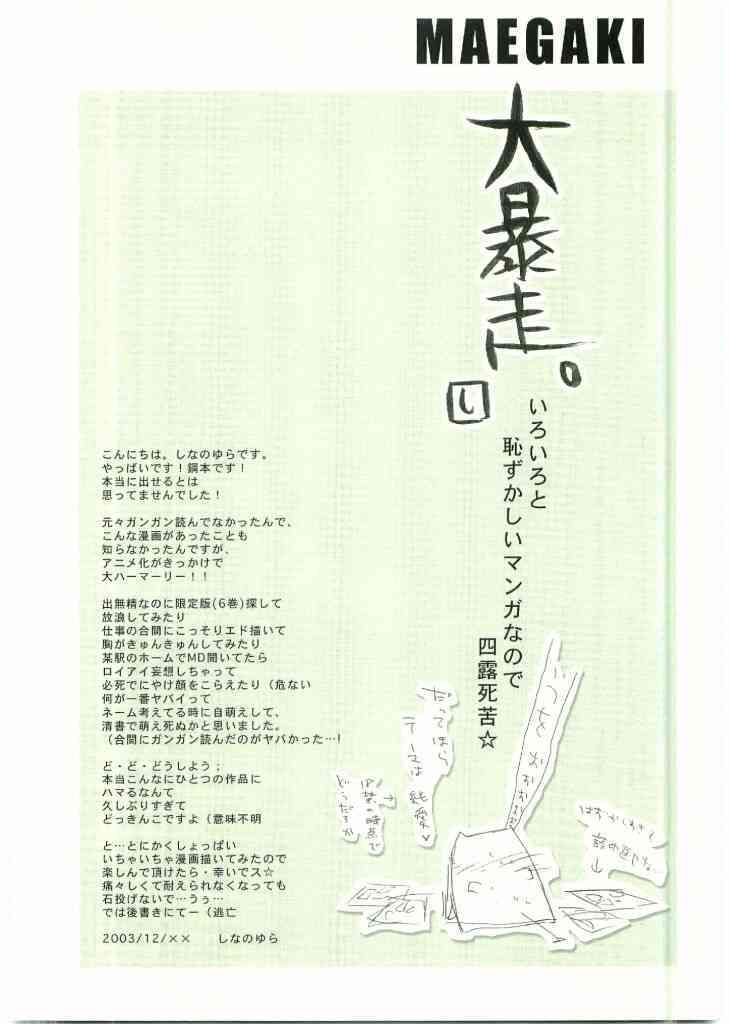 MAEGAKI
大暴走。
し
いろいろと
恥ずかしいマンガなので
四露死苦☆
こんにちは。しなのゆらです。
やっぱいです！鋼本です！
本当に出せるとは
思ってませんでした！
元々ガンガン読んでなかったんで、
こんな漫画があったことも
知らなかったんですが、
アニメ化がきっかけで
大ハーマーリー！！
出無精なのに限定版(6巻)探して
放浪してみたり
仕事の合間にこっそりエド描いて
胸がきゅんきゅんしてみたり
某駅のホームでMD聞いてたら
ロイアイ妄想しちゃって
必死でにやけ顔をこらえたり（危ない
何が一番ヤバイって
ネーム考えてる時に自萌えして、
清書で萌え死ぬかと思いました。
（合間にガンガン読んだのがヤバかった…！
ど・ど・どうしよう；
本当こんなにひとつの作品に
ハマるなんて
久しぶりすぎて
どっきんこですよ（意味不明
と…とにかくしょっぱい
いちゃいちゃ漫画描いてみたので
楽しんで頂けたら・幸いでス☆
痛々しくて耐えられなくなっても
石投げないで…うぅ…
では後書きにてー（逃亡
2003/12/××　しなのゆら
だってほら
テーマは純愛♥
どうだろか